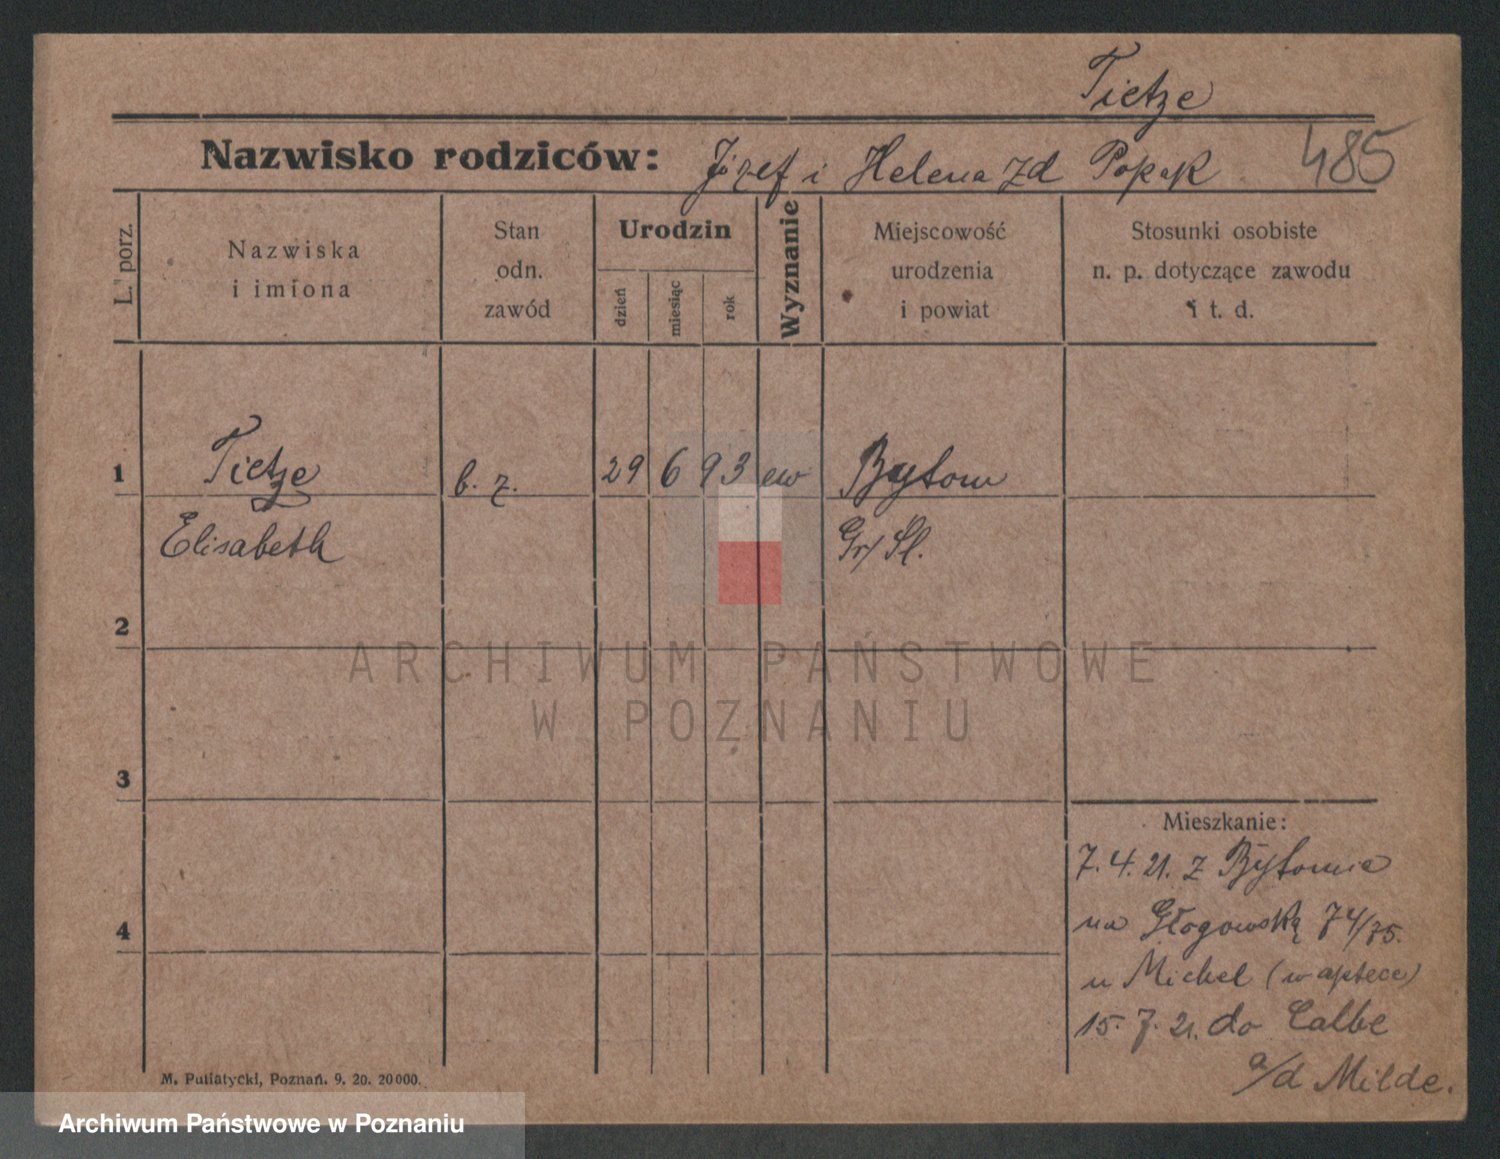 Tietze
Nazwisko rodziców: Józef i Helena zd Popak 485
L. porz.
Nazwiska
i imiona
Stan
odn.
zawód
Urodzin
dzień
miesiąc
rok
Wyznanie
Miejscowość
urodzenia
i powiat
Stosunki osobiste
n. p. dotyczące zawodu
i t. d.
1 Tietze b. z. 29 6 93 ew Bytom
Elisabeth Gr/Sl.
2
ARCHIWUM PAŃSTWOWE
W POZNANIU
3
Mieszkanie:
7. 4. 21. z Bytomia
4 na Głogowską 74/75.
u Michel (w aptece)
15. 7. 21. do Calbe
a/d Milde.
M. Putiatycki, Poznań. 9. 20. 20000.
Archiwum Państwowe w Poznaniu